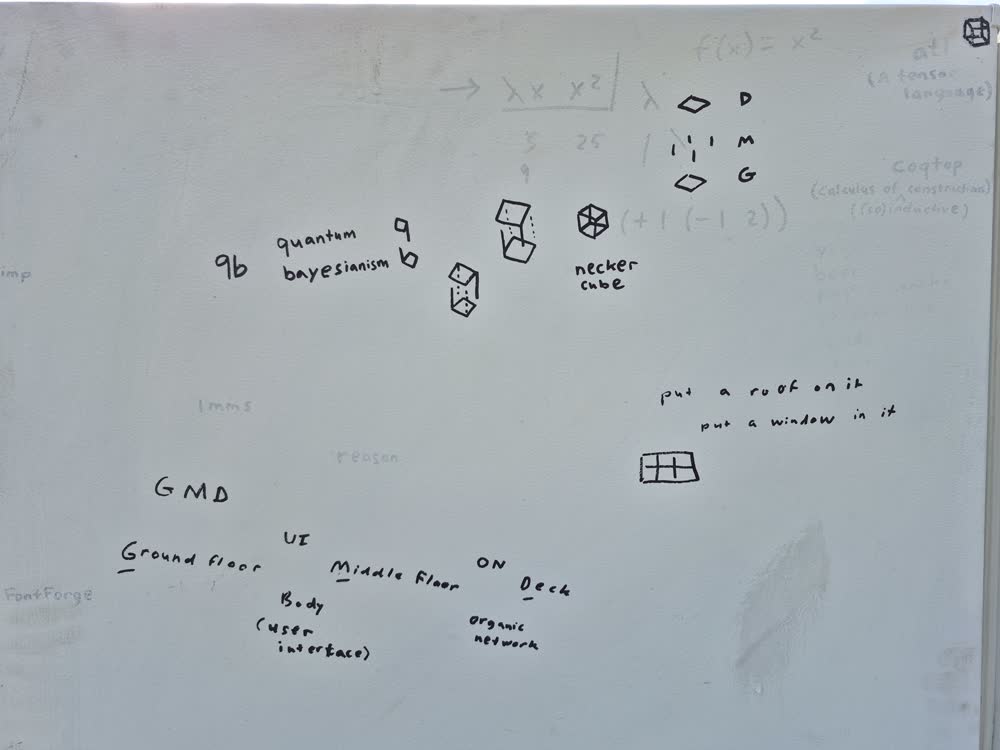 f(x) = x²
atl
(A tensor
language)
→ λx x² λ
D
5 25
M
9
G
coqtop
(calculus of construction)
((co)inductive)
(+ 1 (- 1 2))
quantum q
qb bayesianism b
necker
cube
imp
put a roof on it
put a window in it
1mms
reason
GMD
UI
Ground floor
Middle floor
ON
Deck
FontForge
Body
(user
interface)
organic
network